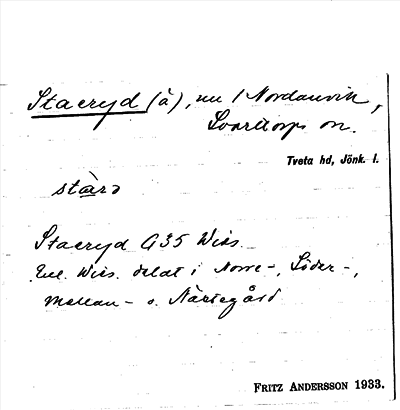 Stacryd (å), nu 1 Nordanvik,
Svarttorps sn.
Tveta hd, Jönk. l.
stàrə
Stacryd G35 Wies.
Enl. Wies. delat i Norre-, Söder-,
Mellan- o. Nästegård
FRITZ ANDERSSON 1933.